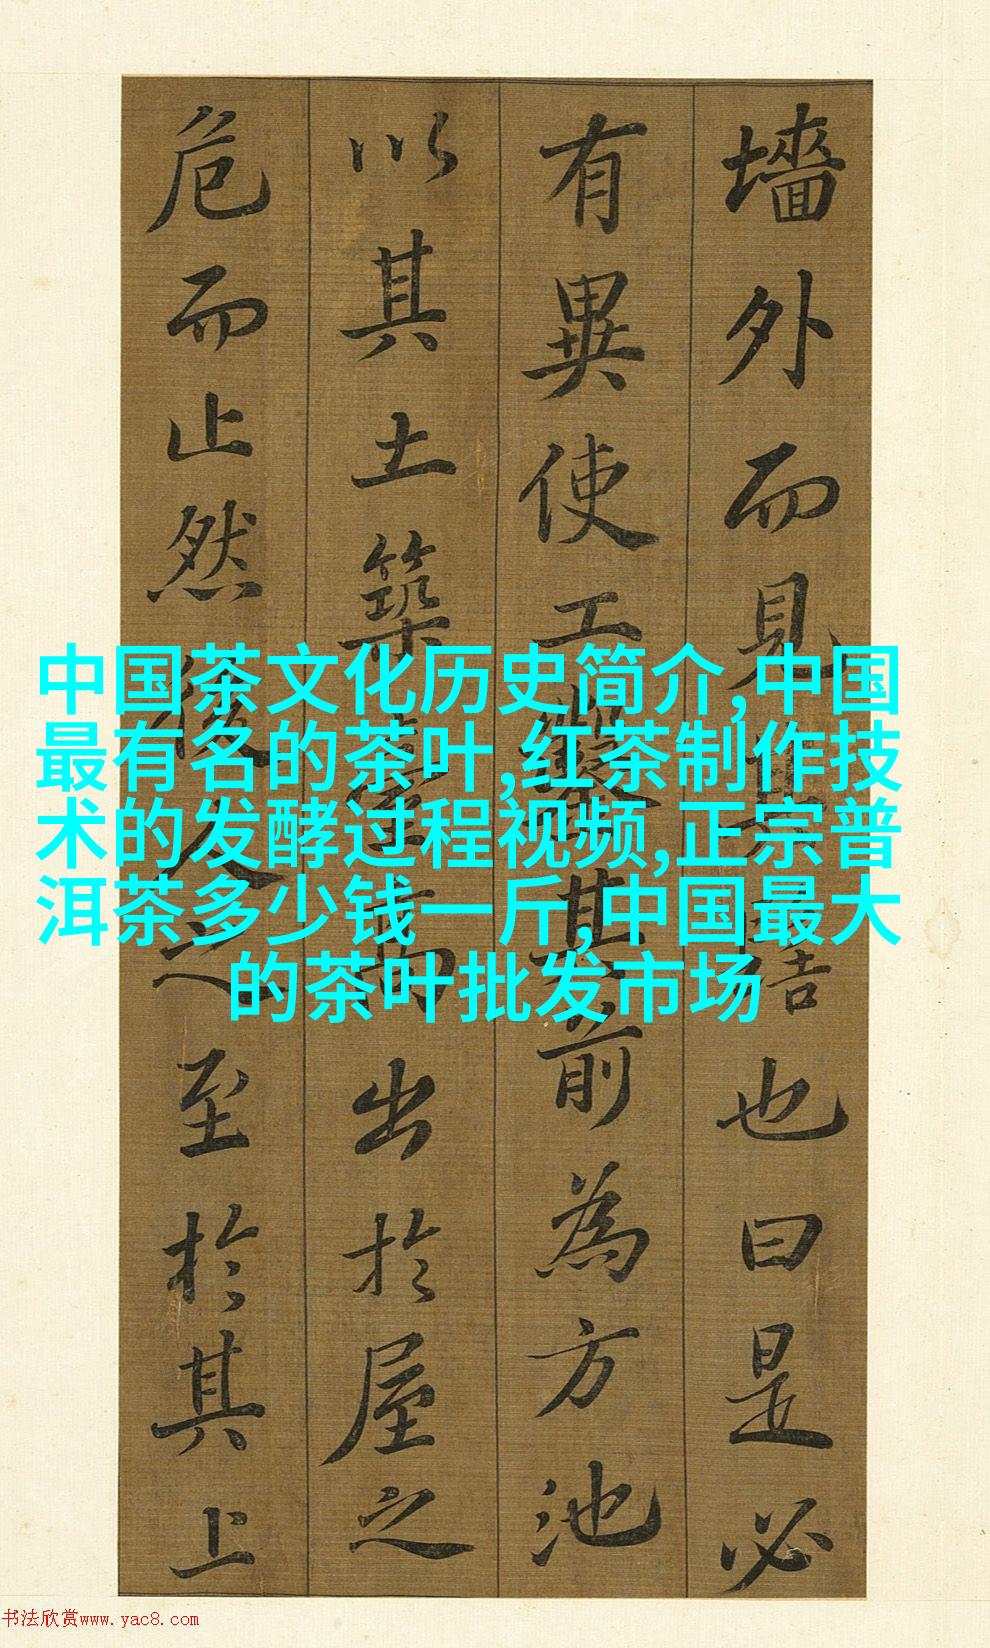 墻外而見其髻也曰是必
有異使工鑿其前為方池
以其土築臺高出於屋之
危而止然後人之至於其上
中国茶文化历史简介,中国
最有名的茶叶,红茶制作技
术的发酵过程视频,正宗普
洱茶多少钱一斤,中国最大
的茶叶批发市场
书法欣赏www.yac8.com